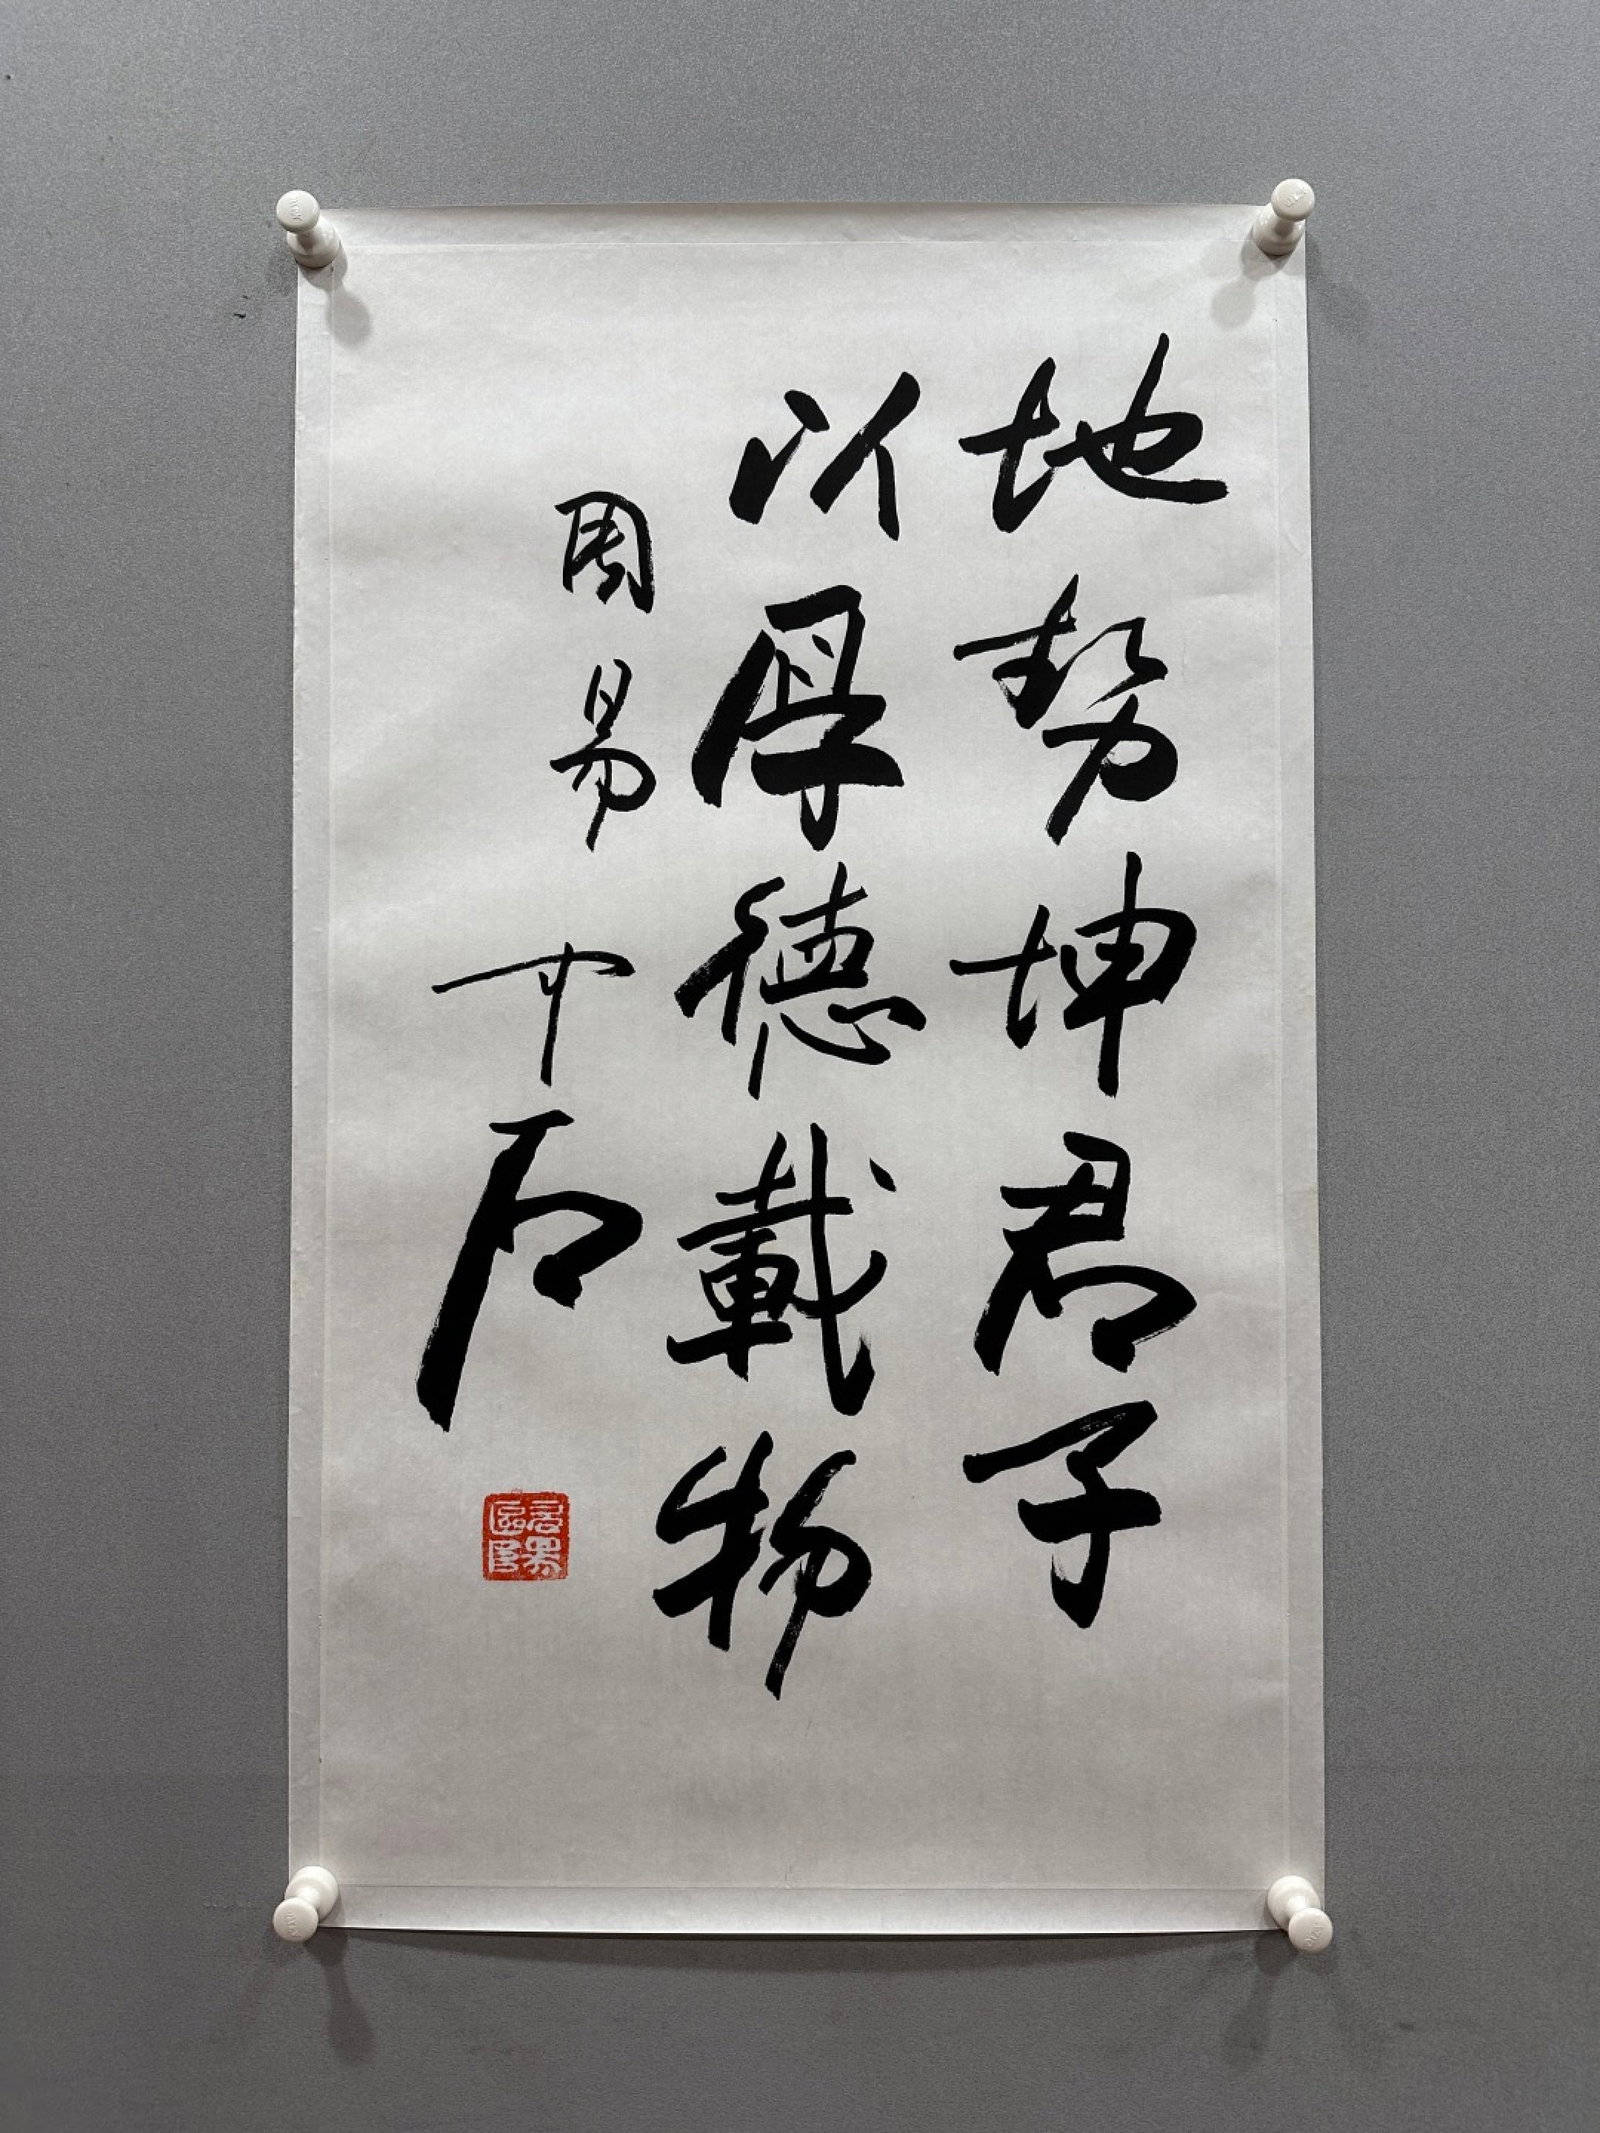 地勢坤君子
以厚德載物
周易 中石